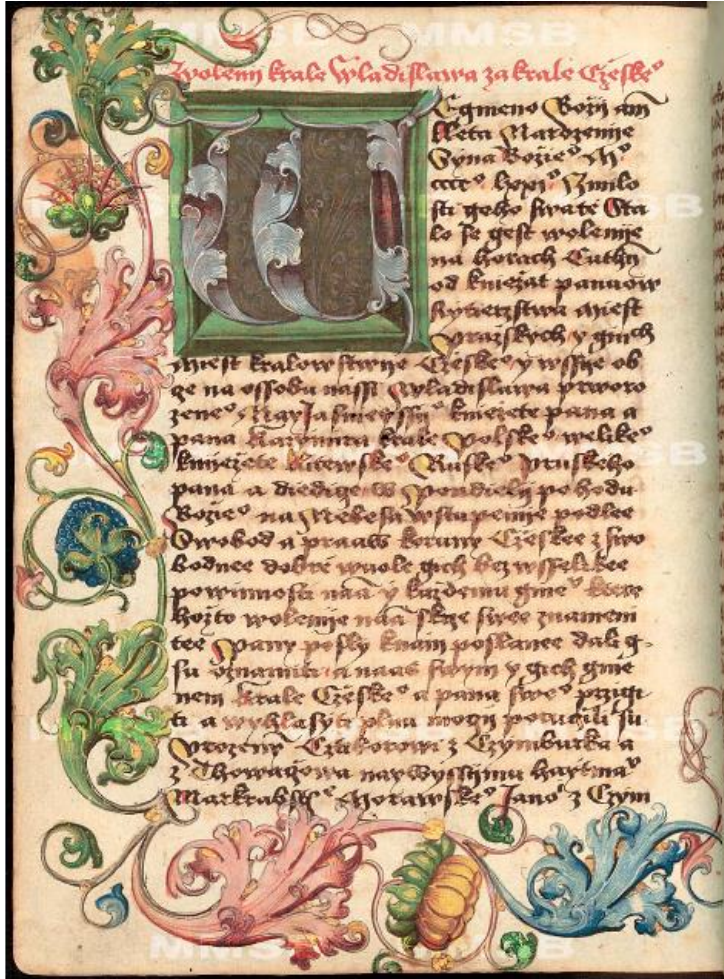 Wolenij krale Wladislawa za krale Cżeskeº
We gmeno Božij am̄
Lleta Narozenije
Syna Božieº Mº
ccccº lxxiº Zmilo
sti geho swate Sta
lo se gest wolenije
na horach Cuthn̄
od kniežat panuow
Rytierzstwa miest
Pražskych y ginch
miest kralowstwije Cżeskeº y wssije ob
ge na ossobu nassi Wladislawa prworo
zeneº Nayjasnieyssijº kniežete pana a
pana Kazymira krale Polskeº welikeº
kniežete Litewskeº Ruskeº Pruskeho
pana a diedige W Pondielij po hodu
Božieº na Nebesa wstupenije podlee
Swobod a praaw koruny Cżeskee z swo
bodnee dobré wuole gich bez wsselikee
powinnosti naā y każdemu gineº ktere
hożto wolenije naā skrze swee znameni
tee Pany posly knám poslanee dali g-
su oznamiti a naas swym y gich gmé
nem krale Cżeskeº a pana sweº przigi-
ti a wyhlasyti plnu mocz poruczili su
Vrozeny Cztiborowi z Czymburka a
z Thowaczowa naywyssijmu haytmaº
Markrabstº Morawskeº Janoº z Czym
MMSB